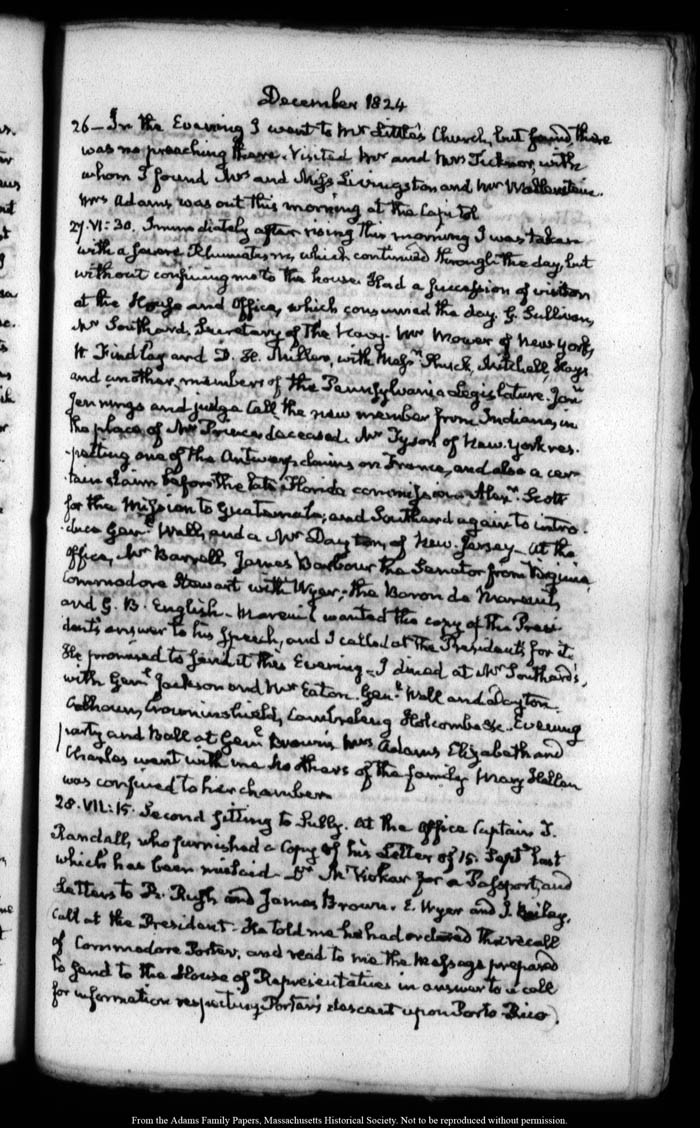 December 1824
26 — In the Evening I went to Mr Little's Church, but found there
was no preaching there. Visited Mr and Mrs Ticknor, with
whom I found Mrs and Miss Livingston and Mr Wallenstein.
Mrs Adams was out this morning at the Capitol
27. VI: 30. Immediately after rising this morning I was taken
with a severe Rhumatism, which continued through the day, but
without confining me to the house. Had a succession of visitors
at the House and Office, which consumed the day. G. Sullivan,
Mr Southard, Secretary of the Navy. Mr Mower of New York,
W Findlay and D. H. Miller, with Messrs Mitchell, Hays
and another, members of the Pennsylvania Legislature. Jonn
Jennings and judge Call the new member from Indiana, in
the place of Mr Prince deceased. Mr Tyson of New-York res-
-pecting one of the Antwerp claims on France, and also a cer-
-tain claim before the late Florida commission. Alexr Scott
for the Mission to Guatemala; and Southard again to intro-
-duce Genl Wall, and a Mr Dayton, of New-Jersey — At the
Office, Mr Barrell, James Barbour the Senator from Virginia
Commodore Stewart with Wyer; the Baron de Mareuil,
and G. B. English — Mareuil wanted the copy of the Presi-
-dent's answer to his Speech, and I called at the President's for it.
He promised to send it this Evening — I dined at Mr Southard's,
with Genl Jackson and Mr Eaton. Genl Wall and Dayton,
Calhoun, Crowninshield, Cambreleng Holcombe &c. Evening
party and Ball at Genl Brown's Mrs Adams Elizabeth and
Charles went with me. No others of the family. Mary Hellen
was confined to her chamber.
28. VII: 15. Second sitting to Sully. At the Office Captain T.
Randall, who furnished a Copy of his Letter of 15. Septr last
which has been mislaid — for a Passport, and
Letters to R. Rush and James Brown. E. Wyer and J. Bailey.
Call at the President's. He told me he had ordered the recall
of Commodore Porter, and read to me the Message prepared
to send to the House of Representatives in answer to a call
for information respecting Porter's descent upon Porto-Rico.
From the Adams Family Papers, Massachusetts Historical Society. Not to be reproduced without permission.